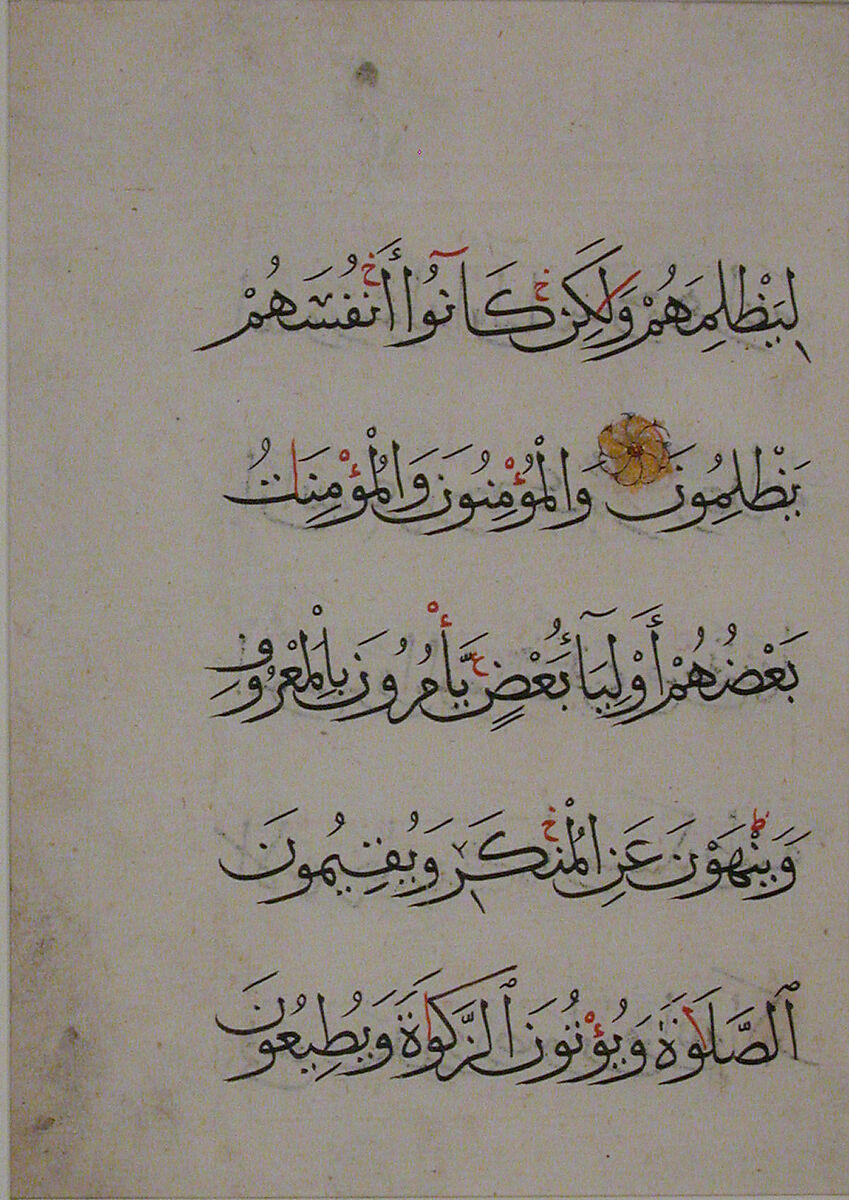 لِيَظْلِمَهُمْ وَلَٰكِن كَانُوٓا أَنفُسَهُمْ
يَظْلِمُونَ وَالْمُؤْمِنُونَ وَالْمُؤْمِنَاتُ
بَعْضُهُمْ أَوْلِيَآءُ بَعْضٍ يَّأْمُرُونَ بِالْمَعْرُوفِ
وَيَنْهَوْنَ عَنِ الْمُنكَرِ وَيُقِيمُونَ
ٱلصَّلَوٰةَ وَيُؤْتُونَ ٱلزَّكَوٰةَ وَيُطِيعُونَ